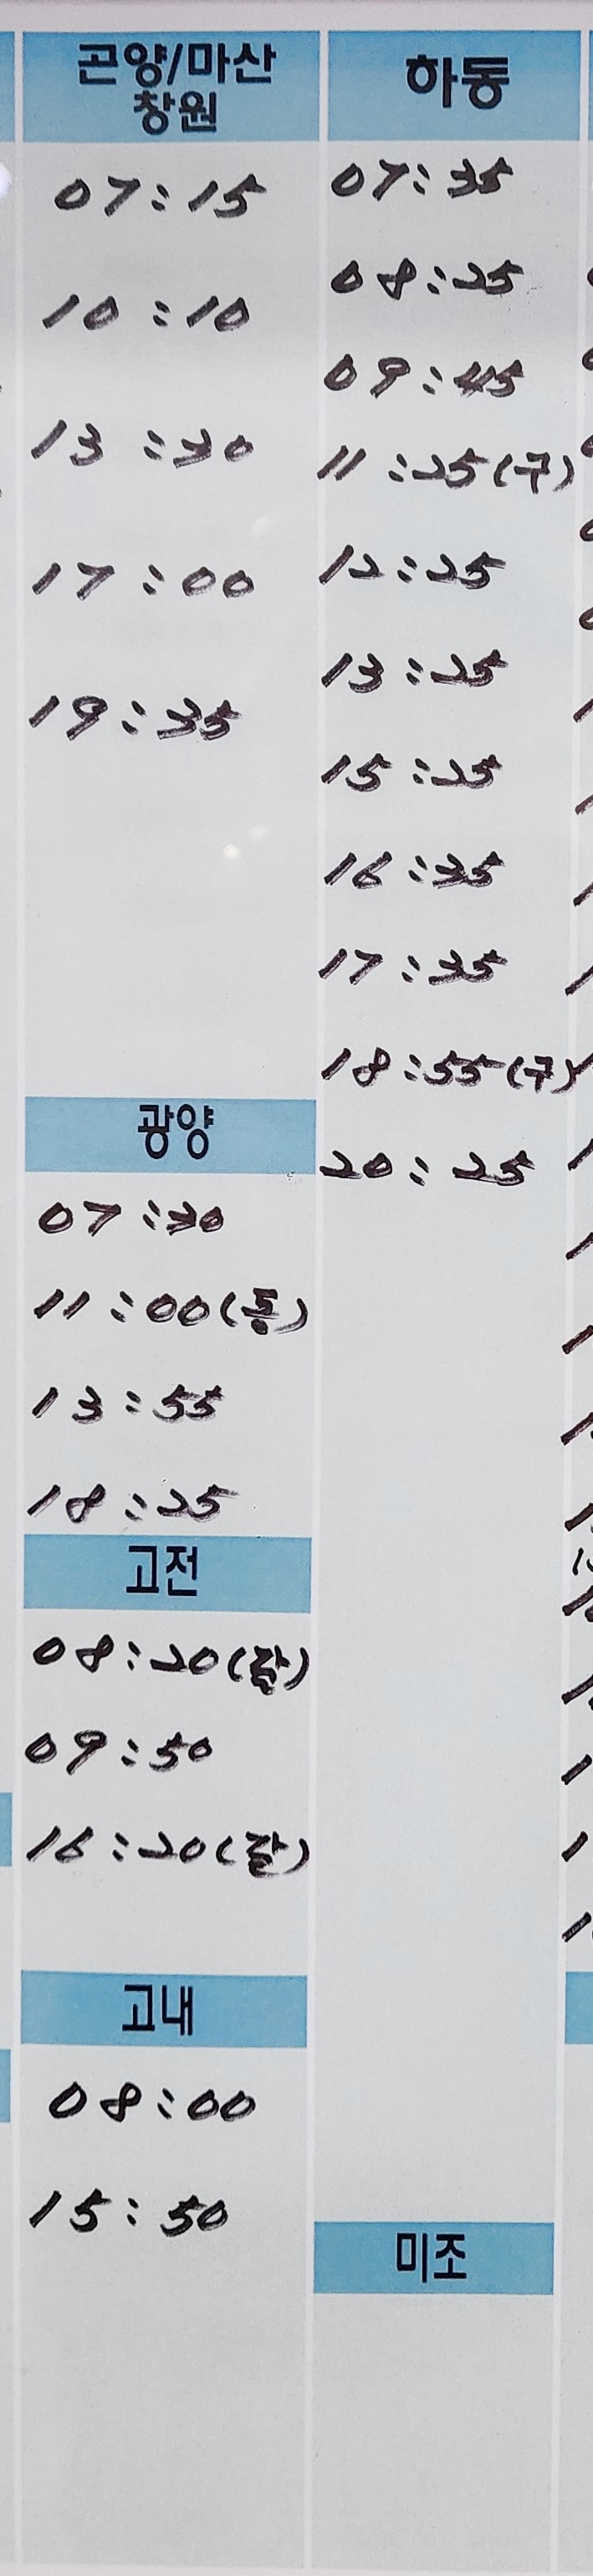 곤양/마산
창원
07:15
10:10
13:30
17:00
19:35
광양
07:30
11:00(동)
13:55
18:25
고전
08:20(갈)
09:50
16:20(갈)
고내
08:00
15:50
하동
07:35
08:25
09:45
11:25(구)
12:25
13:25
15:25
16:35
17:35
18:55(구)
20:25
미조